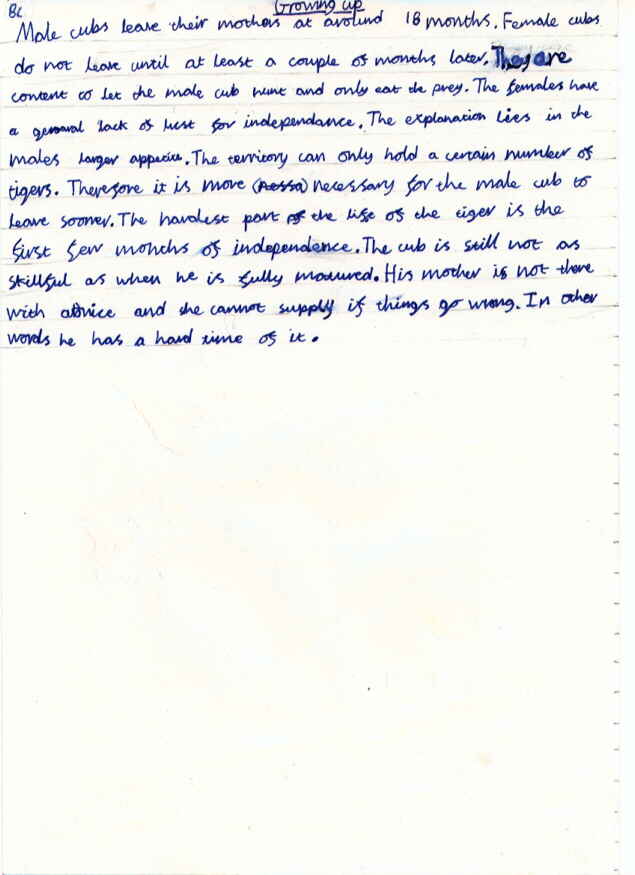 8c
Growing up
Male cubs leave their mothers at around 18 months. Female cubs
do not leave until at least a couple of months later. They are
content to let the male cub hunt and only eat the prey. The females have
a general lack of lust for independance. The explanation lies in the
males larger appetite. The territory can only hold a certain number of
tigers. Therefore it is more (nessa) necessary for the male cub to
leave sooner. The hardest part of the life of the tiger is the
first few months of independence. The cub is still not as
skillful as when he is fully matured. His mother is not there
with advice and she cannot supply if things go wrong. In other
words he has a hard time of it.